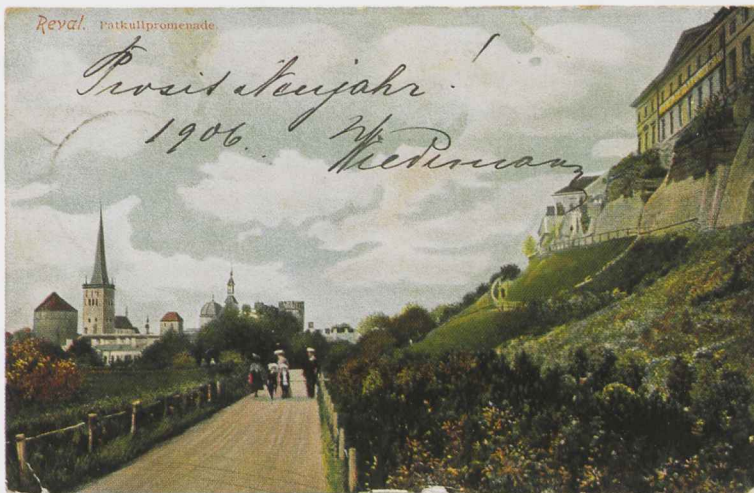 Reval. Patkullpromenade.
Prosit Neujahr!
1906. Wiedemann